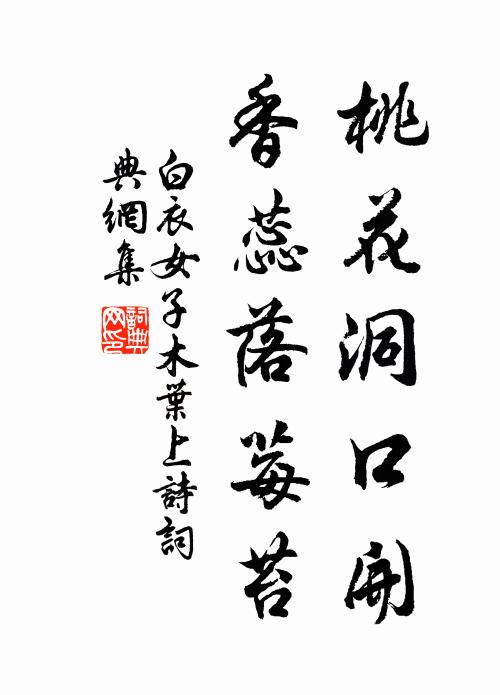 桃花洞口開
香蕊落莓苔
白衣女子木葉上詩詞
典網集
詞典網印